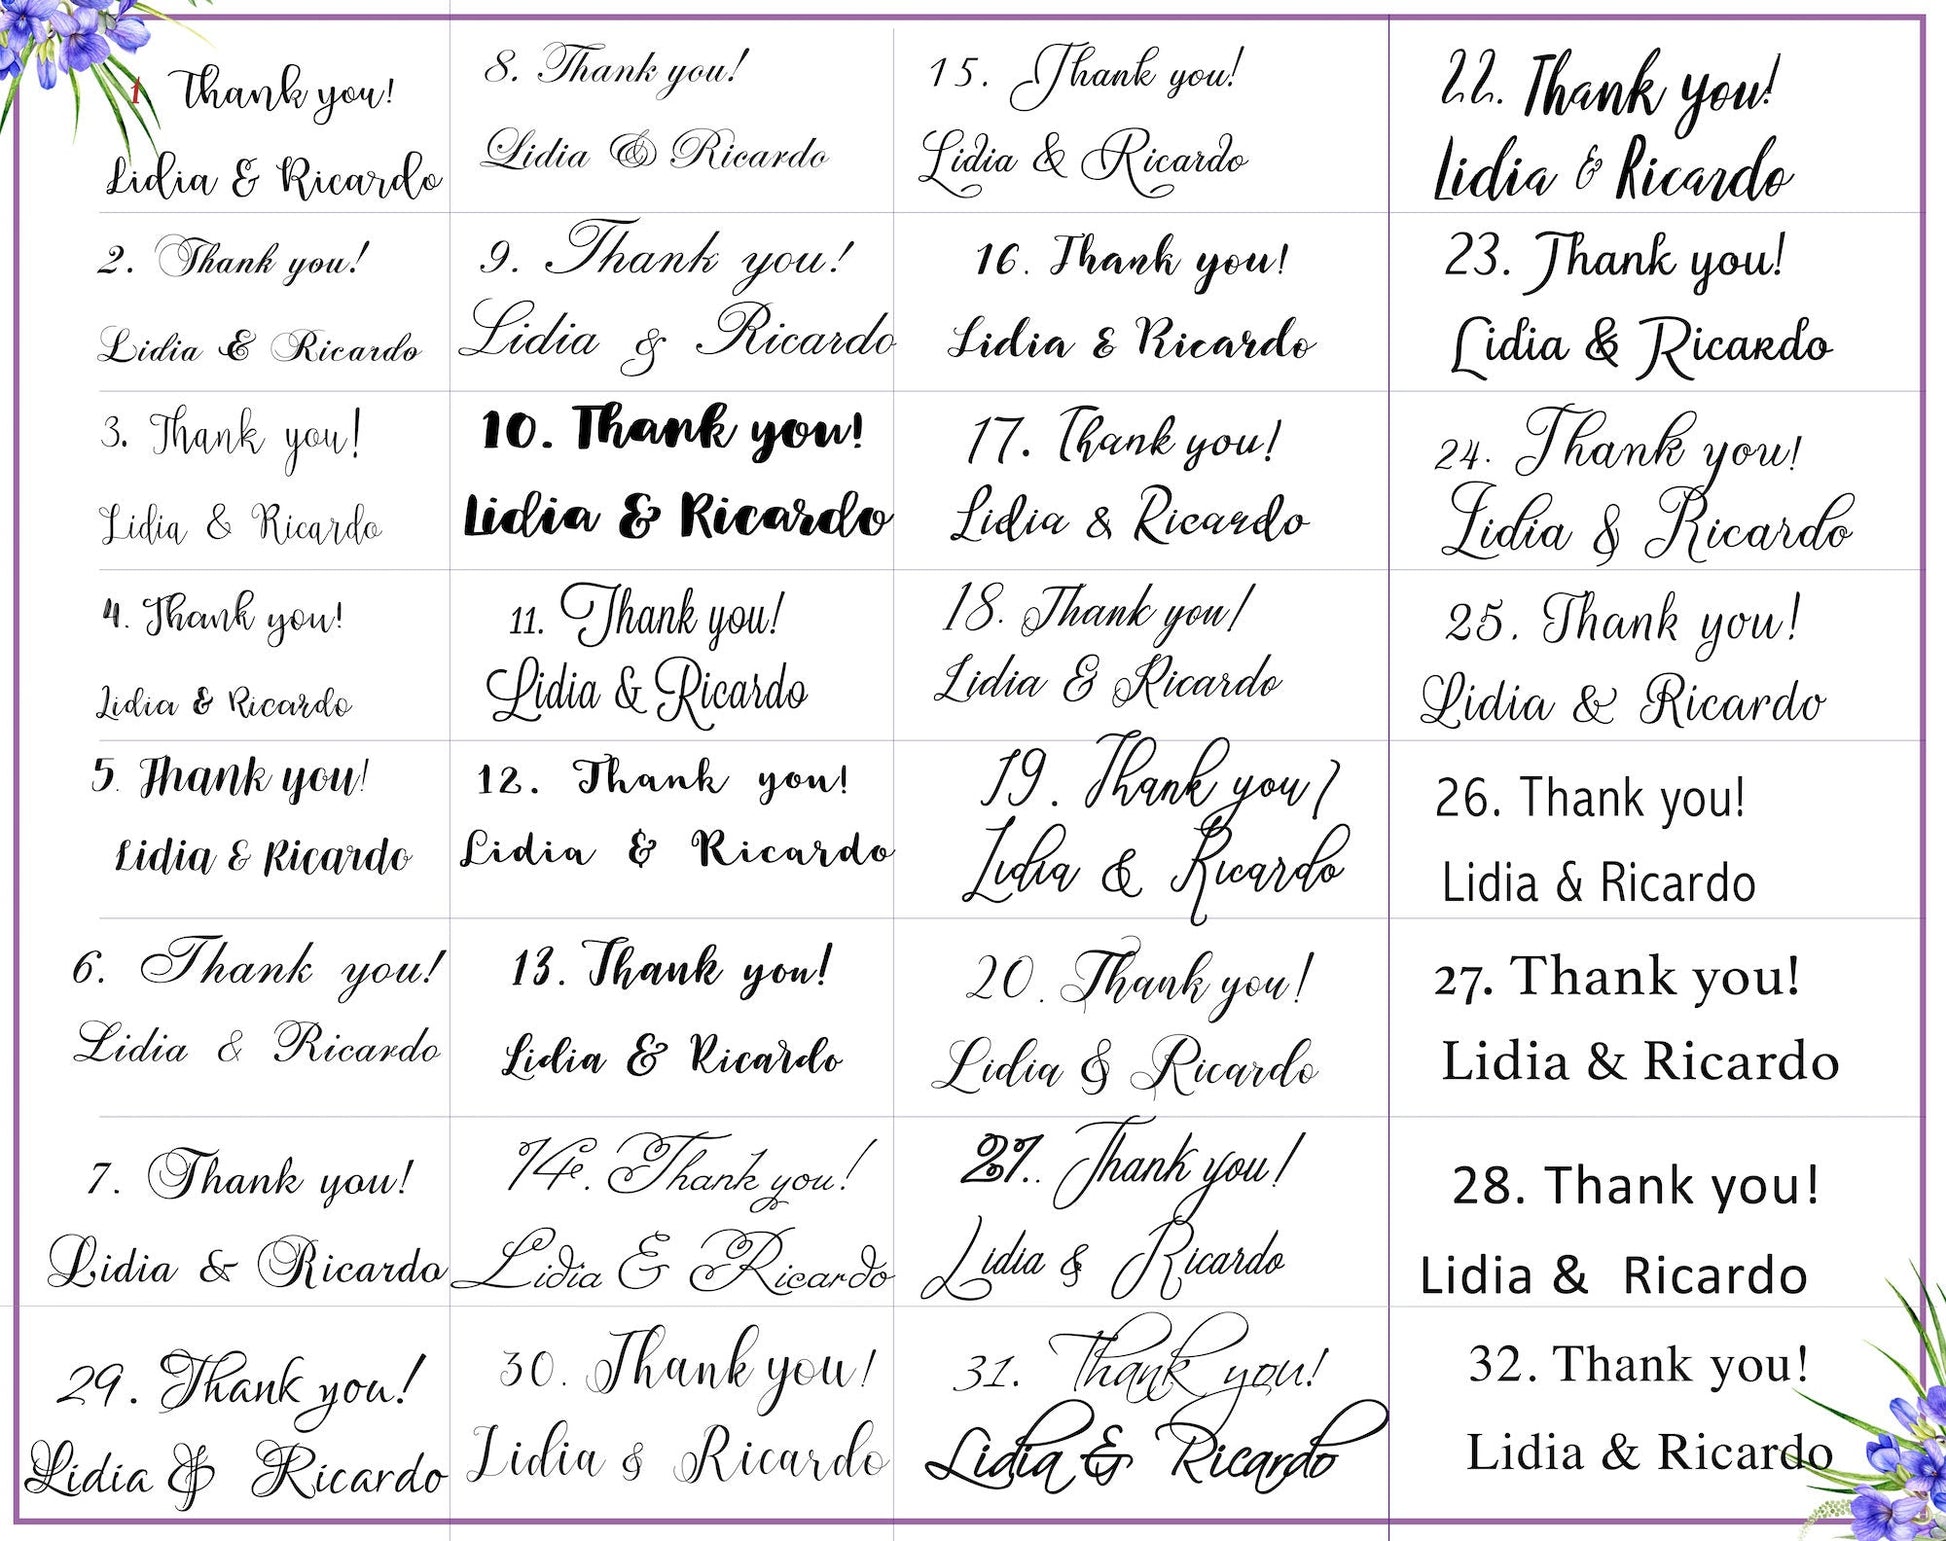 1 Thank you!
Lidia & Ricardo
2. Thank you!
Lidia & Ricardo
3. Thank you!
Lidia & Ricardo
4. Thank you!
Lidia & Ricardo
5. Thank you!
Lidia & Ricardo
6. Thank you!
Lidia & Ricardo
7. Thank you!
Lidia & Ricardo
29. Thank you!
Lidia & Ricardo
8. Thank you!
Lidia & Ricardo
9. Thank you!
Lidia & Ricardo
10. Thank you!
Lidia & Ricardo
11. Thank you!
Lidia & Ricardo
12. Thank you!
Lidia & Ricardo
13. Thank you!
Lidia & Ricardo
14. Thank you!
Lidia & Ricardo
30. Thank you!
Lidia & Ricardo
15. Thank you!
Lidia & Ricardo
16. Thank you!
Lidia & Ricardo
17. Thank you!
Lidia & Ricardo
18. Thank you!
Lidia & Ricardo
19. Thank you!
Lidia & Ricardo
20. Thank you!
Lidia & Ricardo
21.. Thank you!
Lidia & Ricardo
31. Thank you!
Lidia & Ricardo
22. Thank you!
Lidia & Ricardo
23. Thank you!
Lidia & Ricardo
24. Thank you!
Lidia & Ricardo
25. Thank you!
Lidia & Ricardo
26. Thank you!
Lidia & Ricardo
27. Thank you!
Lidia & Ricardo
28. Thank you!
Lidia & Ricardo
32. Thank you!
Lidia & Ricardo